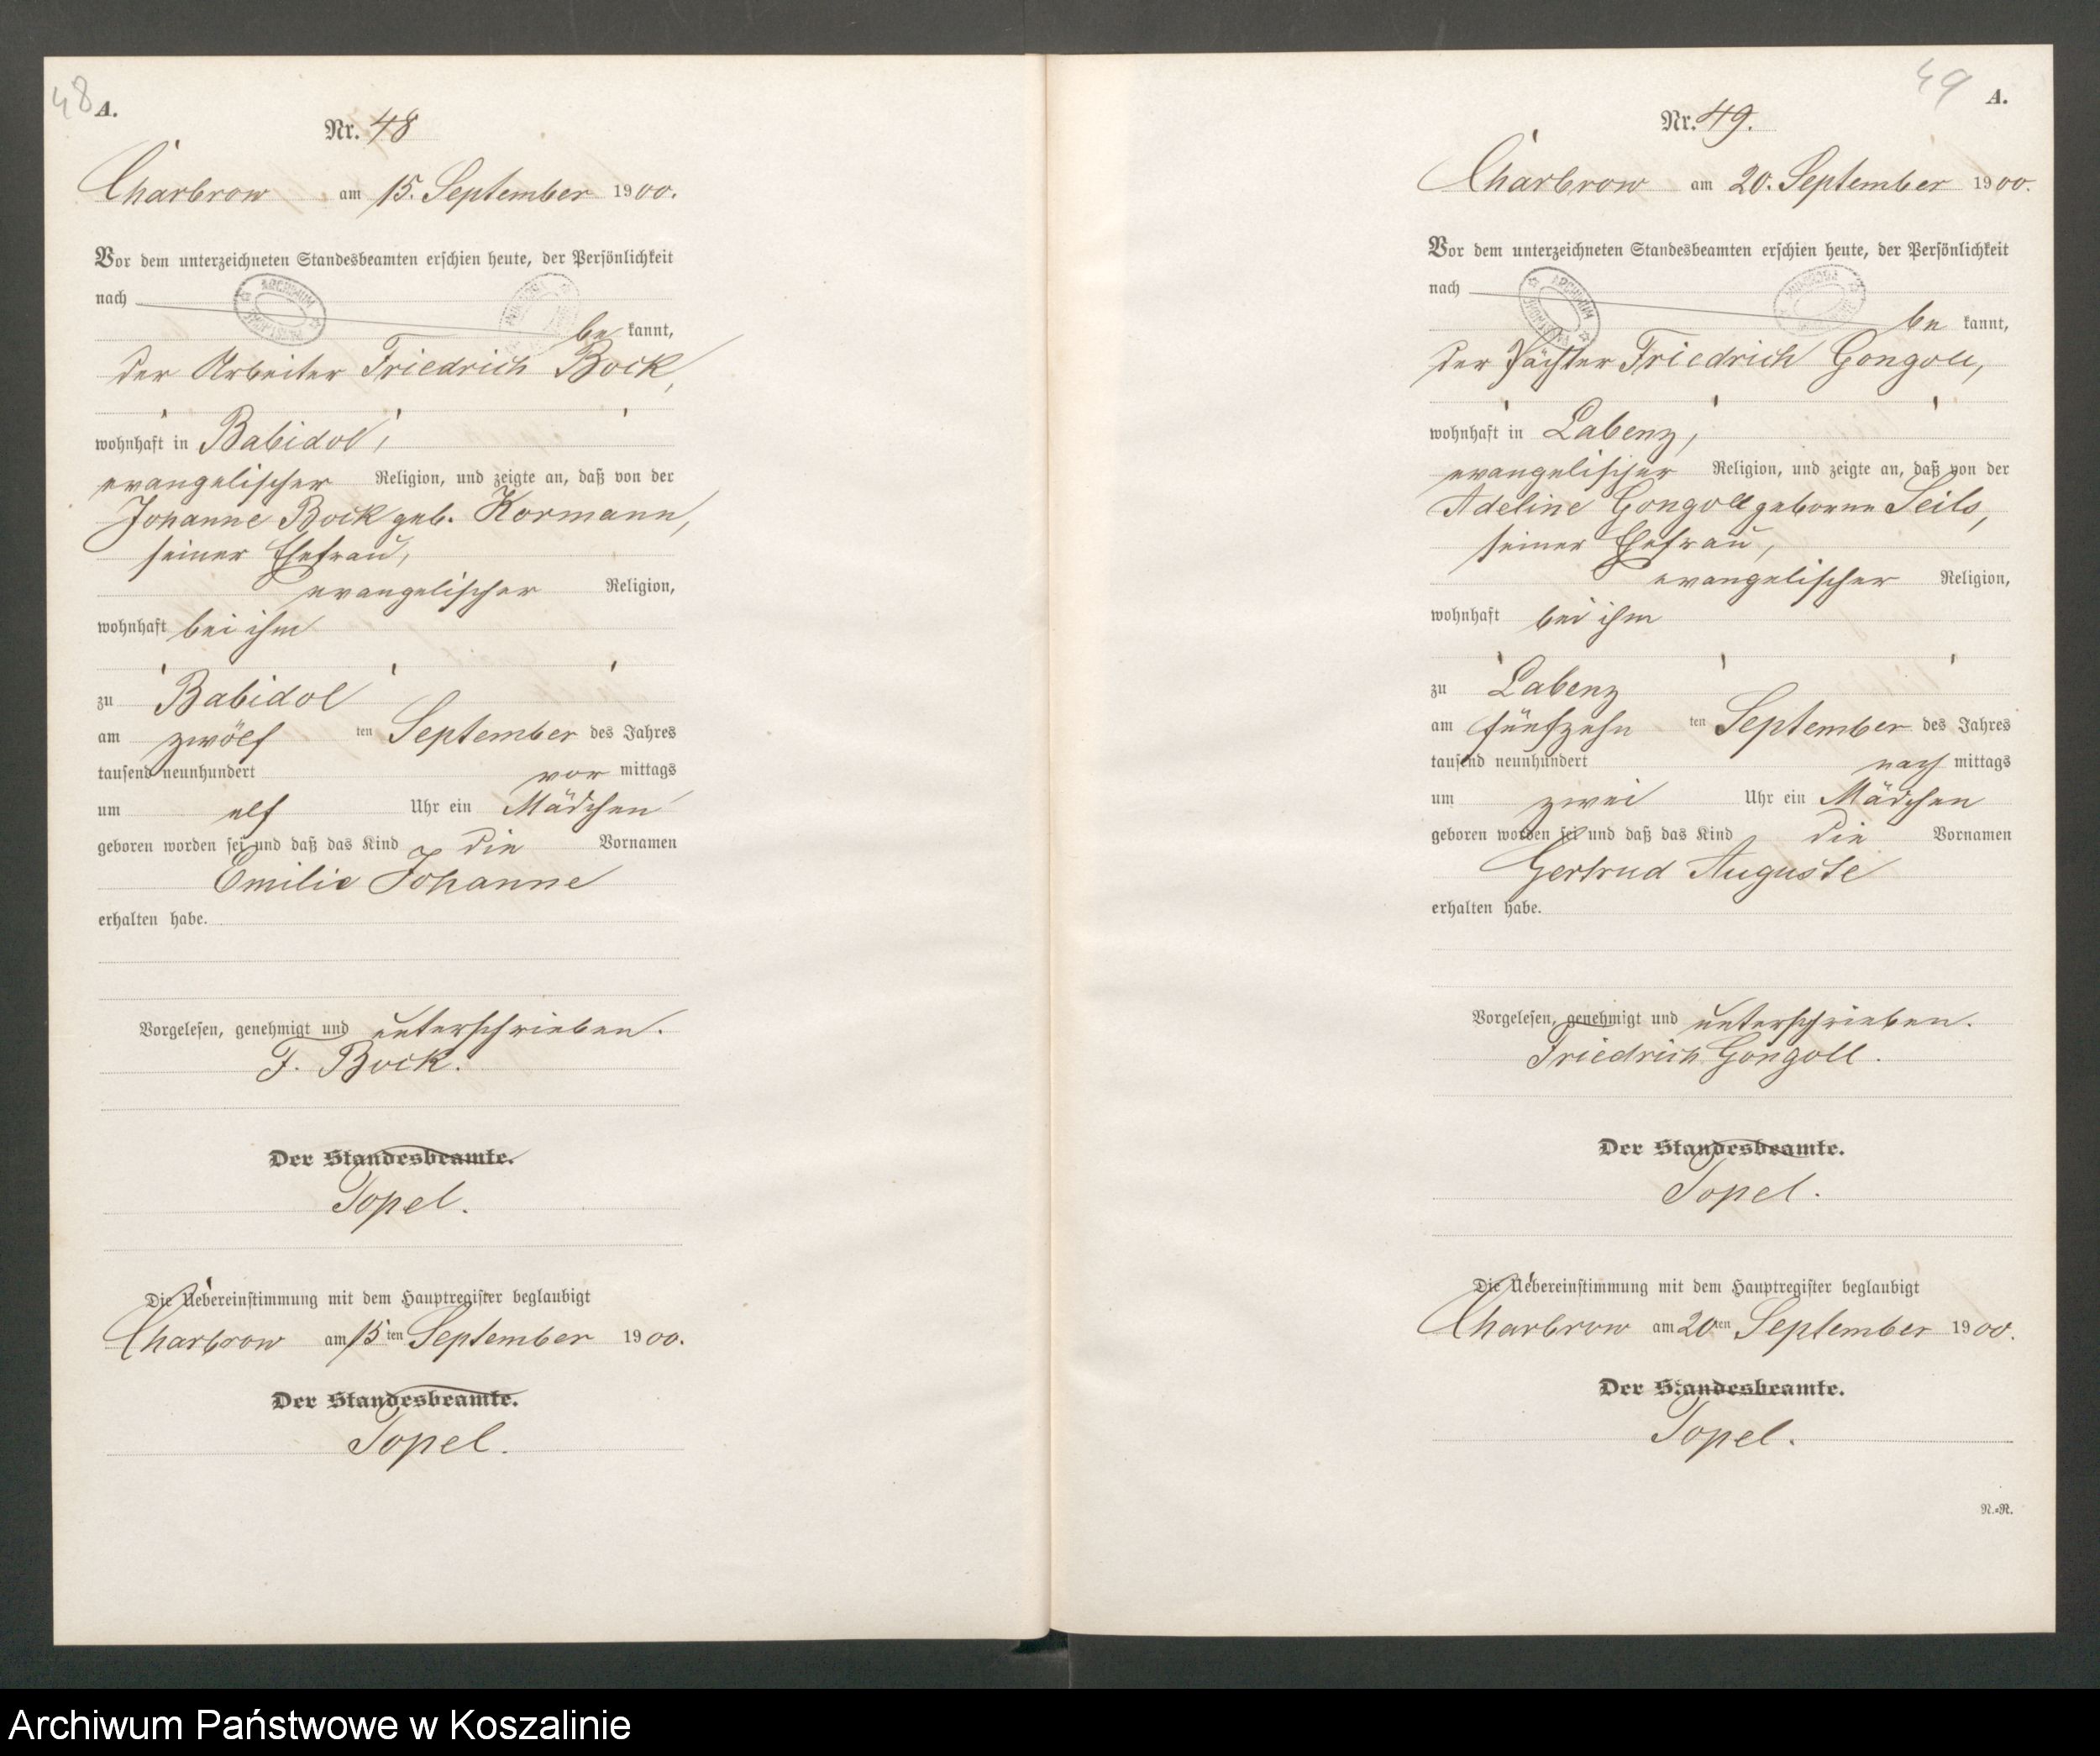 48 A.
Nr. 48
Charbrow am 15. September 1900.
Vor dem unterzeichneten Standesbeamten erschien heute, der Persönlichkeit
nach
be kannt,
der Arbeiter Friedrich Bock,
wohnhaft in Babidol,
evangelischer Religion, und zeigte an, daß von der
Johanne Bock geb. Kormann,
seiner Ehefrau,
evangelischer Religion,
wohnhaft bei ihm
zu Babidol
am zwölf ten September des Jahres
tausend neunhundert vor mittags
um elf Uhr ein Mädchen
geboren worden sei und daß das Kind die Vornamen
Emilie Johanne
erhalten habe.
Vorgelesen, genehmigt und unterschrieben.
F. Bock.
Der Standesbeamte.
Topel.
Die Uebereinstimmung mit dem Hauptregister beglaubigt
Charbrow am 15 ten September 1900.
Der Standesbeamte.
Topel.
49 A.
Nr. 49.
Charbrow am 20. September 1900.
Vor dem unterzeichneten Standesbeamten erschien heute, der Persönlichkeit
nach
be kannt,
der Pächter Friedrich Gongoll,
wohnhaft in Labenz,
evangelischer Religion, und zeigte an, daß von der
Adeline Gongoll geborne Seils,
seiner Ehefrau,
evangelischer Religion,
wohnhaft bei ihm
zu Labenz
am fünfzehn ten September des Jahres
tausend neunhundert nach mittags
um zwei Uhr ein Mädchen
geboren worden sei und daß das Kind die Vornamen
Gertrud Auguste
erhalten habe.
Vorgelesen, genehmigt und unterschrieben.
Friedrich Gongoll.
Der Standesbeamte.
Topel.
Die Uebereinstimmung mit dem Hauptregister beglaubigt
Charbrow am 20 ten September 1900.
Der Standesbeamte.
Topel.
N.-R.
Archiwum Państwowe w Koszalinie